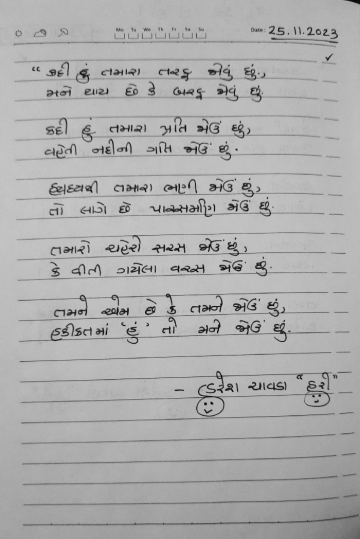 Mo Tu We Th Fr Sa Su Date: 25.11.2023
"કદી હું તમારા તરફ જોવું છું,
મને થાય છે કે બરફ જોવું છું.
કદી હું તમારા પ્રતિ જોઉં છું,
વહેતી નદીની ગતિ જોઉં છું.
તમારા ભણી જોઉં છું,
તો લાગે છે પારસમણિ જોઉં છું.
તમારો ચહેરો સરસ જોઉં છું,
કે વીતી ગયેલા વરસ જોઉં છું.
તમને એમ છે કે તમને જોઉં છું,
હકીકતમાં 'હું' તો મને જોઉં છું.
- હરેશ ચાવડા "હરી"